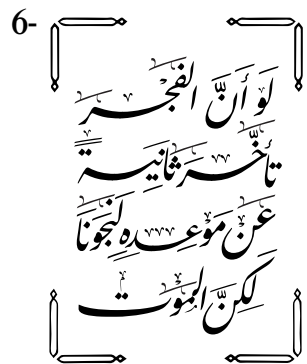 6-
لَو أَنَّ الفَجْرَ
تأَخَّرَ ثانِيةً
عَنْ مَوْعِدِهِ لَنجَونَا
لَكِنَّ الْمَوْت